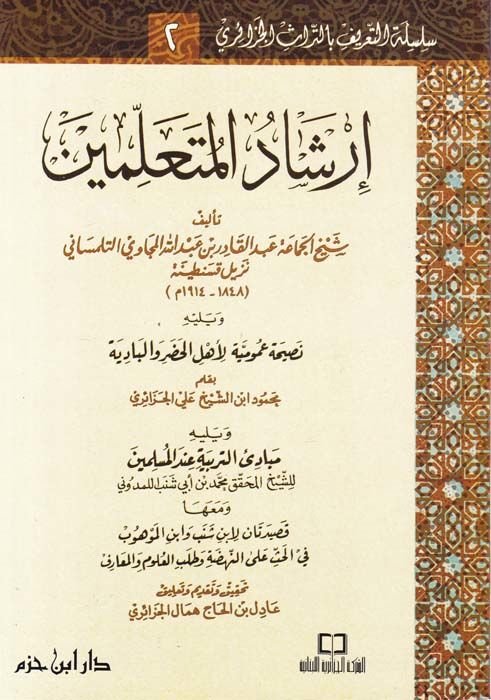 سلسلة التعريف بالتراث الجزائري ٢
إِرشَادُ المُتَعَلِّمِين
تأليف
شيخ الجماعة عبد القادر بن عبد الله المجاوي التلمساني
نزيل قسنطينة
(١٨٤٨ - ١٩١٤م)
ويليه
نصيحة عمومية لأهل الحضر والبادية
بقلم
محمود ابن الشيخ علي الجزائري
ويليه
مبادئ التربية عند المسلمين
للشيخ المحقق محمد بن أبي شنب اللمدوني
ومعها
قصيدتان لابن شنب وابن الموهوب
في الحث على النهضة وطلب العلوم والمعارف
تحقيق وتقديم وتعليق
عادل بن الحاج همال الجزائري
الشركة الجزائرية اللبنانية
دار ابن حزم